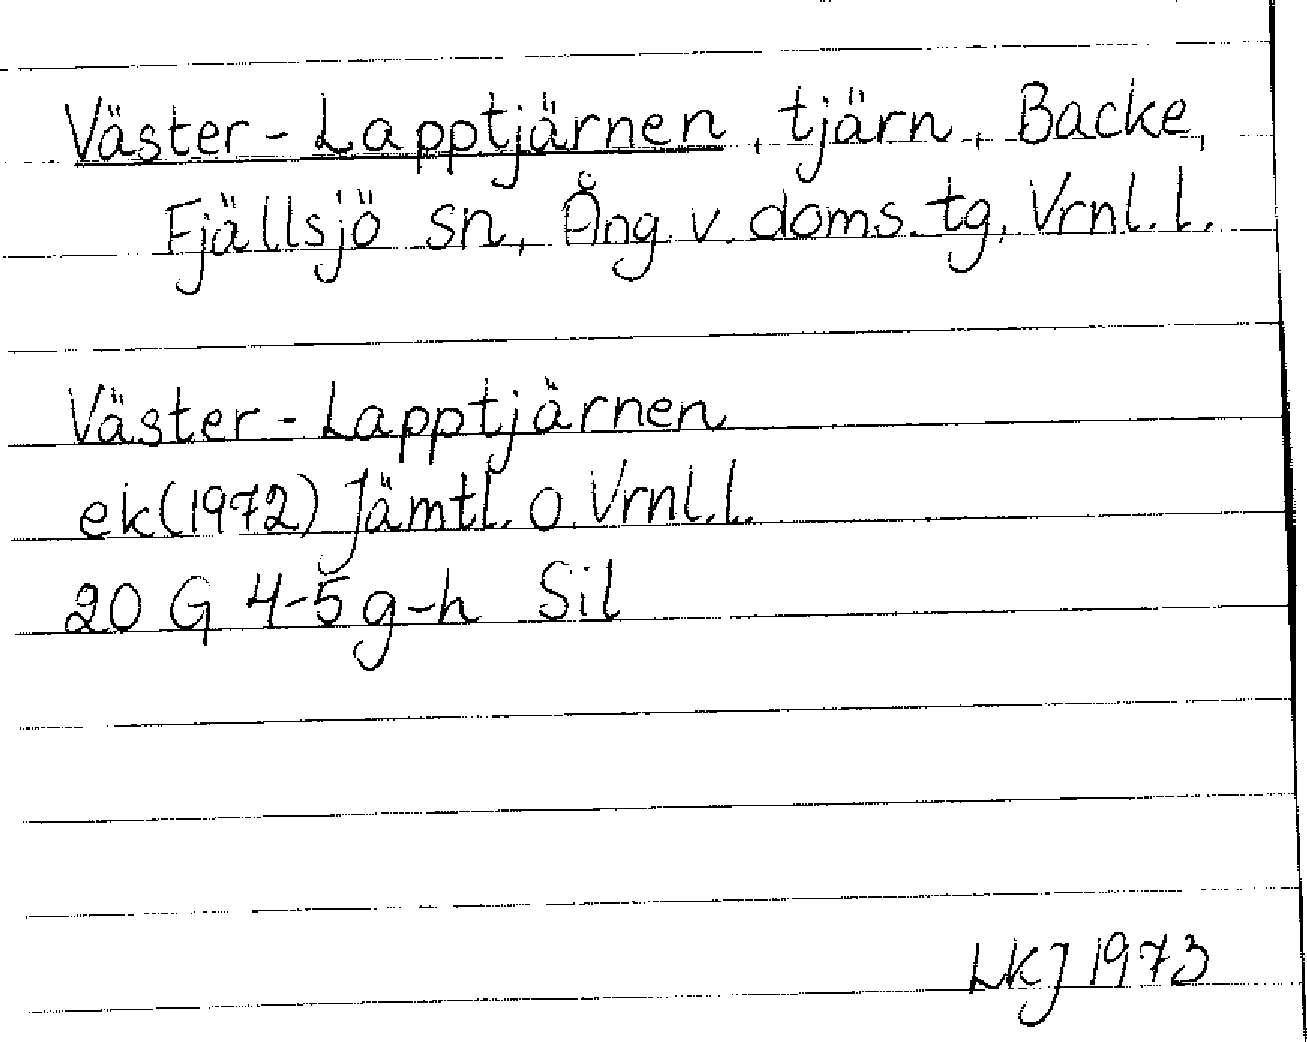 Väster-Lapptjärnen, tjärn, Backe,
Fjällsjö sn, Ång. v. doms. tg, Vrnl. l.
Väster-Lapptjärnen
ek (1972) Jämtl. o. Vrnl. l.
20 G 4-5 g-h Sil
LKJ 1973